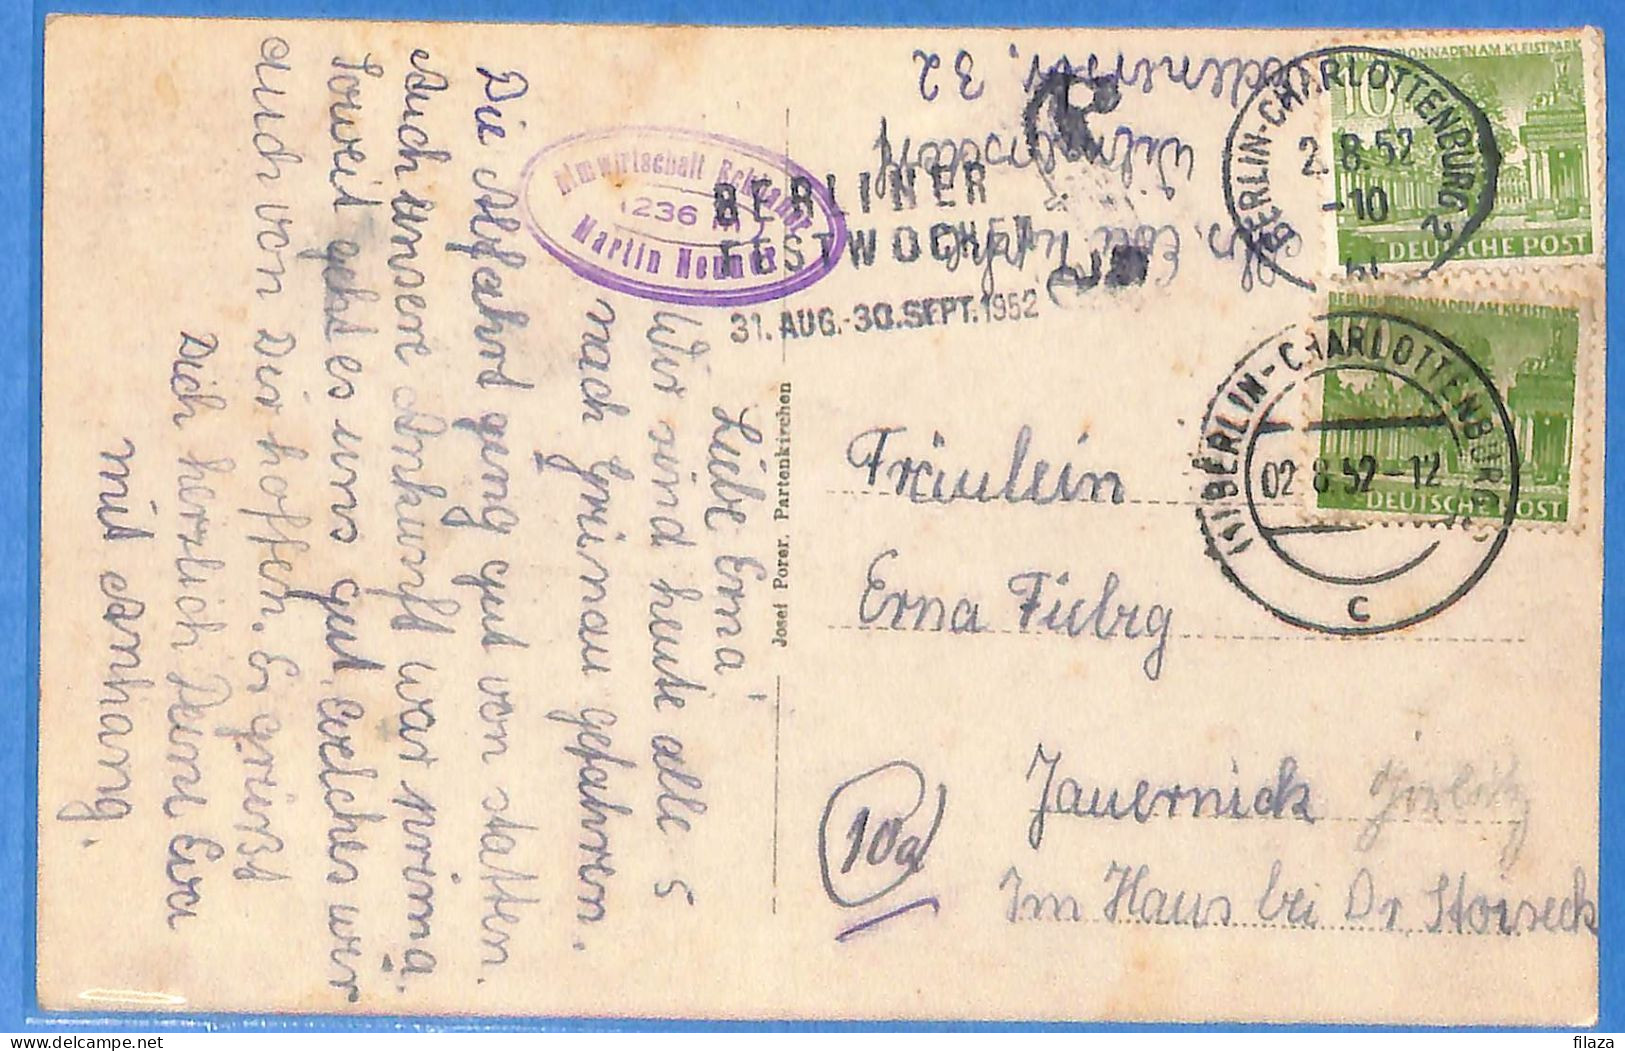 Liebe Erna!
Wir sind heute alle 5
nach Grainau gefahren.
Die Abfahrt ging gut von statten.
Auch unsere Ankunft war prima.
Soweit geht es uns gut, welches wir
auch von Dir hoffen. Es grüsst
Dich herzlich Deine Eva
mit Anhang.
Almwirtschaft
1236 m
Martin Neuner
BERLINER
FESTWOCHEN
31. AUG.-30.SEPT.1952
Abs. Eva
Wilmersdorf
32
BERLIN-CHARLOTTENBURG 2
2.8.52
-10
bl
BERLIN-KOLONNADEN AM KLEISTPARK
10
DEUTSCHE POST
BERLIN-KOLONNADEN AM KLEISTPARK
10
DEUTSCHE POST
(1) BERLIN-CHARLOTTENBURG
02.8.52-12
c
Josef Porer, Partenkirchen
Fräulein
Erna Fiebig
Jauernick Görlitz
10a
Im Haus bei Dr.
filaza